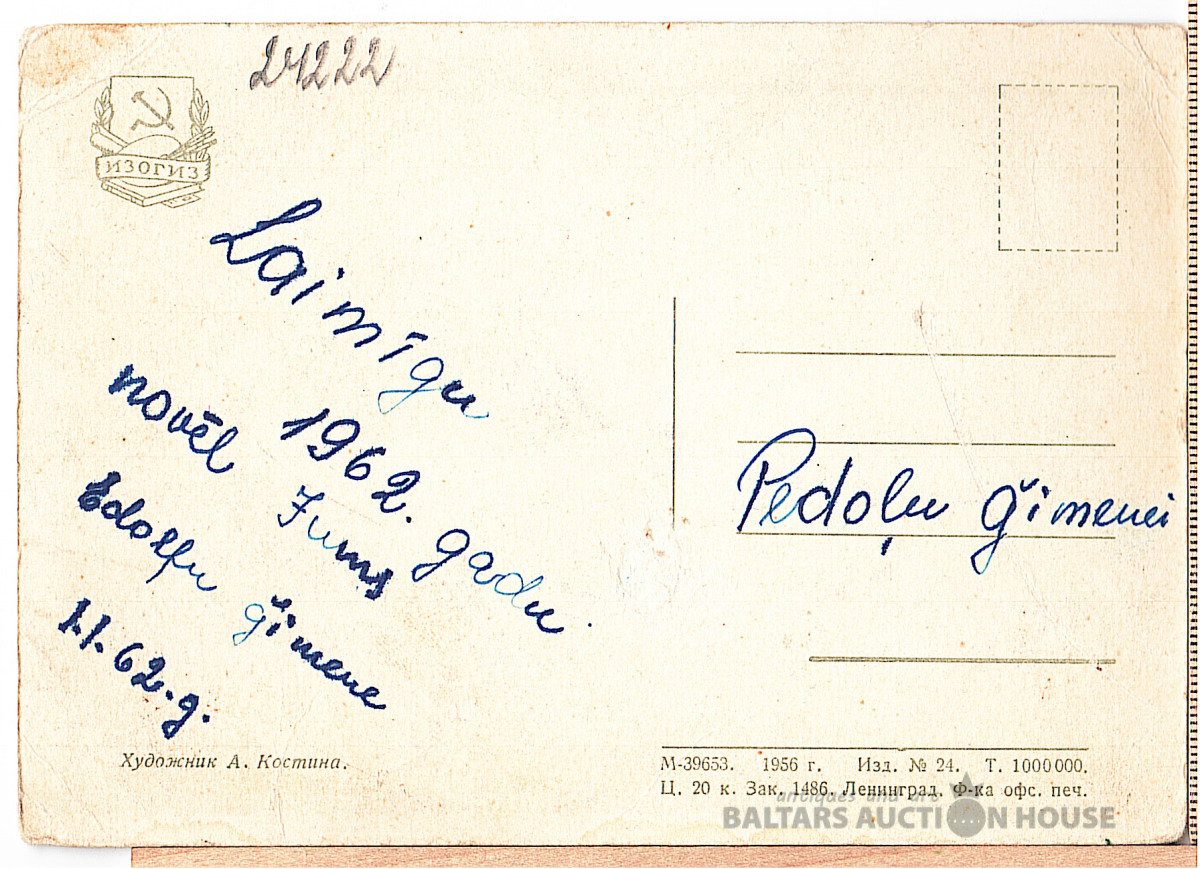 24222
ИЗОГИЗ
Laimīgu
1962. gadu
novēl Jums
Edolfu ģimene
1.1.62.g.
Pedoļu ģimenei
Художник А. Костина.
М-39653. 1956 г. Изд. № 24. Т. 1000000.
Ц. 20 к. Зак. 1486. Ленинград. Ф-ка офс. печ.
antiques and art
BALTARS AUCTION HOUSE